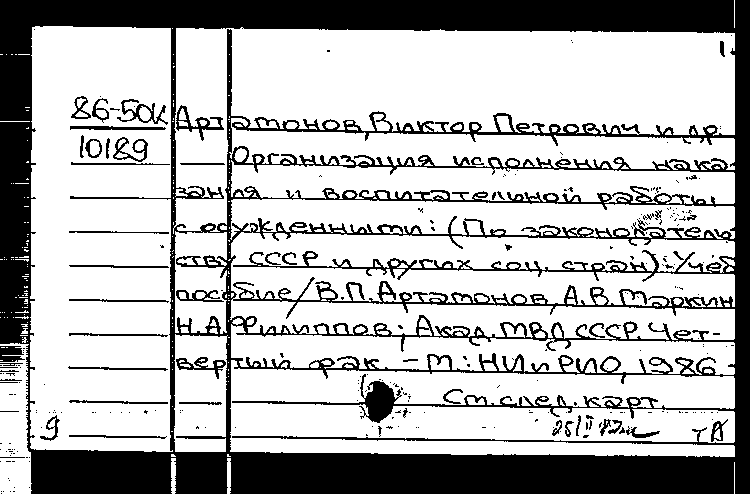 1.
86-50К Артамонов, Виктор Петрович и др.
10189 Организация исполнения нака-
зания и воспитательной работы
с осужденными: (По законодатель-
ству СССР и других соц. стран): Учеб.
пособие / В.П. Артамонов, А.В. Маркин
Н.А. Филиппов; Акад. МВД СССР. Чет-
вертый фак. – М.: НИ и РИО, 1986. -
Ст. след. карт.
9 ТА